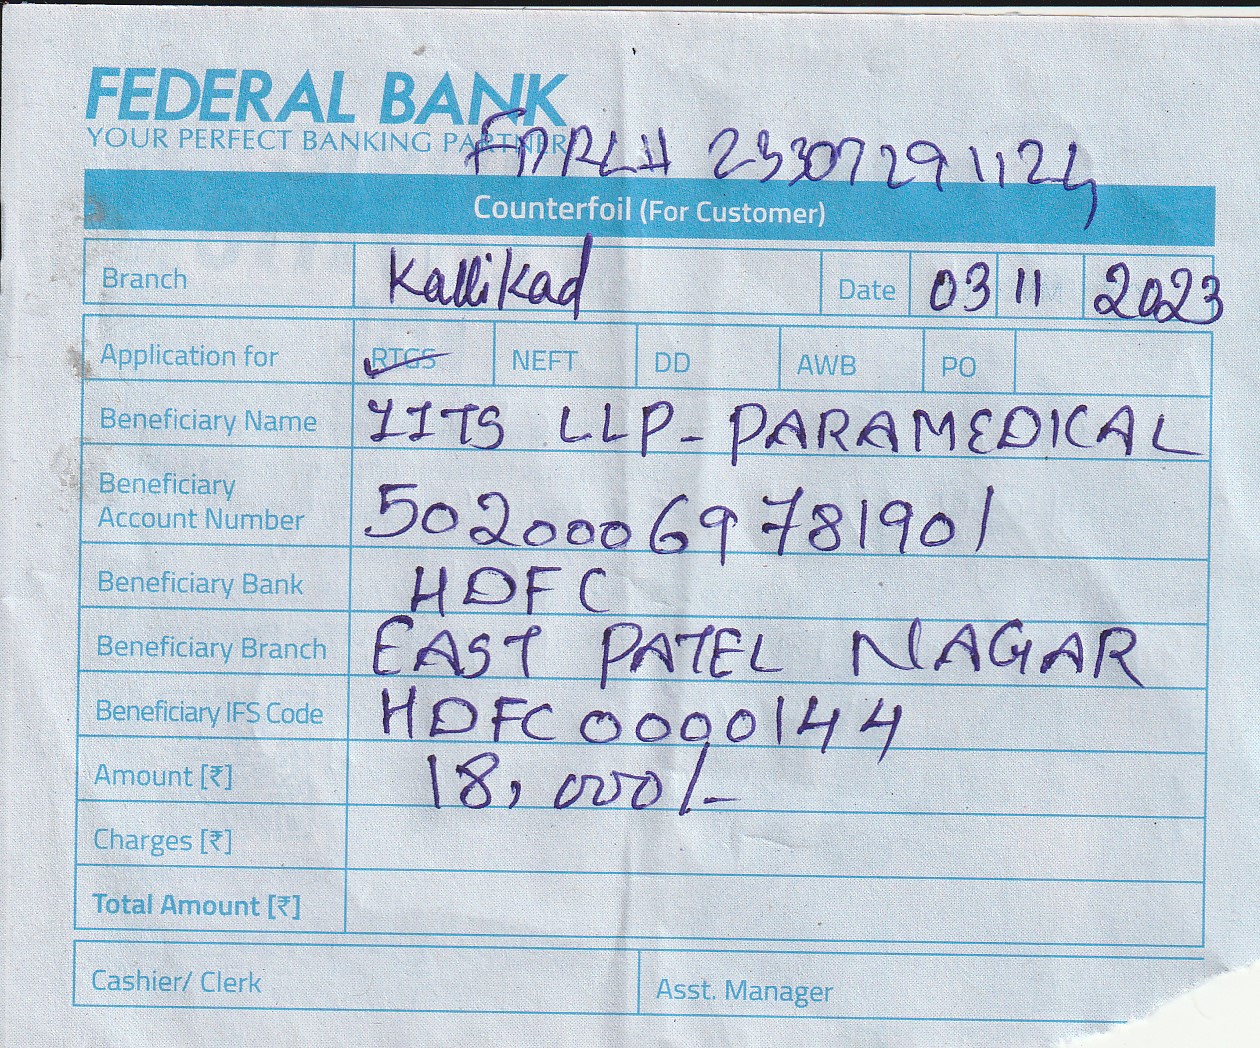 FEDERAL BANK
YOUR PERFECT BANKING PARTNER
FDRLH 23307291124
Counterfoil (For Customer)
Branch Kallikad Date 03 11 2023
Application for RTGS NEFT DD AWB PO
Beneficiary Name IITS LLP-PARAMEDICAL
Beneficiary
Account Number 50200069781901
Beneficiary Bank HDFC
Beneficiary Branch EAST PATEL NAGAR
Beneficiary IFS Code HDFC0000144
Amount [₹] 18,000/-
Charges [₹]
Total Amount [₹]
Cashier/ Clerk Asst. Manager